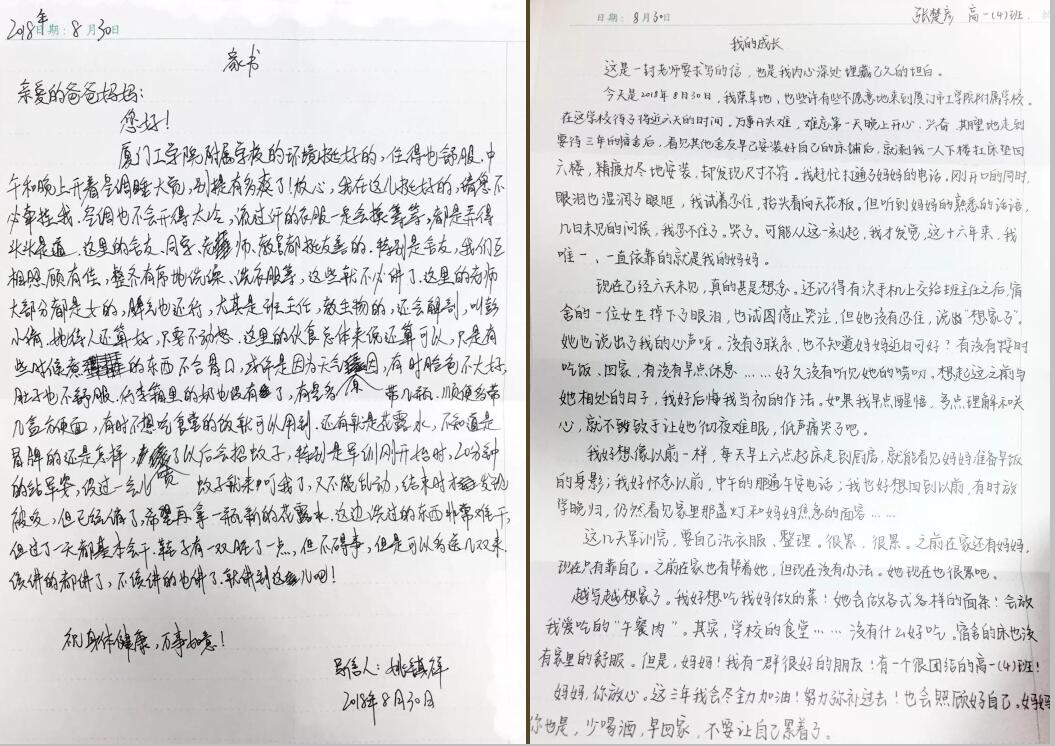 2018年
日期：8月30日
家书
亲爱的爸爸妈妈：
您好！
厦门工学院附属学校的环境挺好的，住得也舒服。中
午和晚上开着空调睡大觉，别提有多爽了！放心，我在这儿挺好的，请您不
必牵挂我。空调也不会开得太冷，流过汗的衣服一定会换等等，都是弄得
头头是道。这里的舍友、同学、老师、教官都挺友善的。特别是舍友，我们互
相照顾有佳，整齐有序地洗澡、洗衣服等，这些就不必讲了。这里的老师
大部分都是女的，脾气也还行，尤其是班主任，教生物的，还会解剖，叫彭
小倩，她待人还算好，只要不动怒。这里的伙食总体来说还算可以，只是有
些时候煮的东西不合胃口，或许是因为天气原因，有时脸色不大好，
肚子也不舒服。行李箱里的奶也没有了，有多带几瓶，顺便多带
几盒方便面，有时不想吃食堂的饭就可以用到。还有就是花露水，不知道是
冒牌的还是怎样，喷了以后会招蚊子，特别是军训刚开始时，20分钟
的站军姿，没过一会儿蚊子就来叮我了，又不能乱动，结束时才发现
被咬，但已经痛了，希望再拿一瓶新的花露水。这边洗过的东西非常难干，
但过了一天都基本会干，鞋子有一双脏了一点，但不碍事，但是可以多送几双来。
该讲的都讲了，不该讲的也讲了，就讲到这儿吧！
祝身体健康，万事如意！
写信人：姚镇锋
2018年8月30日
日期：8月30日
张楚彦 高一(4)班.
我的成长
这是一封老师要求写的信，也是我内心深处埋藏已久的坦白。
今天是2018年8月30日，我荣幸地，也些许有些不愿意地来到厦门市工学院附属学校。
在这学校待了将近六天的时间。万事开头难，难忘第一天晚上开心、兴奋、期望地走到
要待三年的宿舍后，看见其他舍友早已安装好自己的床铺后，就剩我一人下楼扛床垫回
六楼，精疲力尽地安装，却发现尺寸不符。我赶忙打通了妈妈的电话。刚开口的同时，
眼泪也湿润了眼眶，我试着忍住，抬头看向天花板。但听到妈妈的熟悉的话语，
几日未见的问候，我忍不住了。哭了。可能从这一刻起，我才发觉，这十六年来，我
唯一、一直依靠的就是我的妈妈。
现在已经六天未见，真的甚是想念。还记得有次手机上交给班主任之后，宿
舍的一位女生掉下了眼泪，也试图停止哭泣，但她没有忍住，说出“想家了”。
她也说出了我的心声呀。没有了联系，也不知道妈妈近日可好？有没有按时
吃饭、回家，有没有早点休息……好久没有听见她的唠叨。想起这之前与
她相处的日子，我好后悔我当初的作法。如果我早点醒悟，多点理解和关
心，就不致于让她彻夜难眠，低声痛哭了吧。
我好想像以前一样，每天早上六点起床走到厨房，就能看见妈妈准备早饭
的身影；我好怀念以前，中午的那通午安电话；我也好想回到以前，有时放
学晚归，仍然看见家里那盏灯和妈妈焦急的面容……
这几天军训完，要自己洗衣服、整理。很累，很累。之前在家还有妈妈，
现在只有靠自己。之前在家也有帮着她，但现在没有办法。她现在也很累吧。
越写越想家了。我好想吃我妈做的菜！她会做各式各样的面条！会放
我爱吃的“午餐肉”。其实，学校的食堂……没有什么好吃。宿舍的床也没
有家里的舒服。但是，妈妈！我有一群很好的朋友！有一个很团结的高一(4)班！
妈妈，你放心。这三年我会尽全力加油！努力弥补过去！也会照顾好自己。妈妈
你也是，少喝酒，早回家，不要让自己累着了。